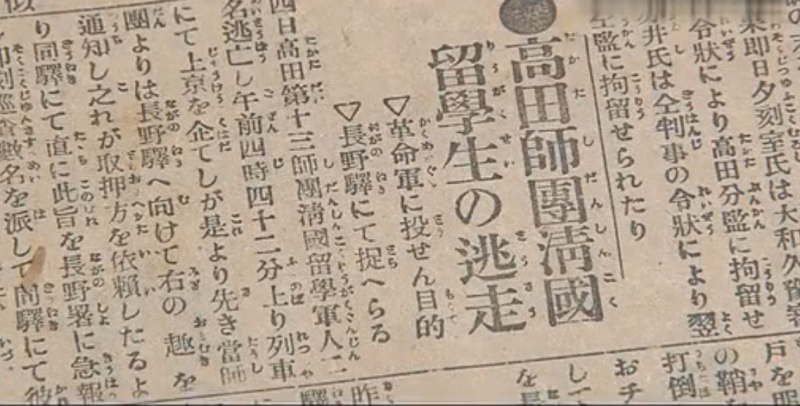 果即日夕刻室氏は大和久豫審
令狀により高田分監に拘留せ
井氏は仝判事の令狀により翌
監に拘留せられたり
高田師團淸國
留學生の逃走
▽革命軍に投せん目的
▽長野驛にて捉へらる
四日高田第十三師團淸國留學軍人二
名逃亡し午前四時四十二分上り列車
にて上京を企てしが是より先き當師
團よりは長野驛へ向けて右の趣を
通知し之れが取押方を依賴したるよ
り同驛にて直に此旨を長野署に急報
卽刻巡査數名を派して同驛にて彼
戶を
の鞘
打倒
おチ
して
を長
昨
驛